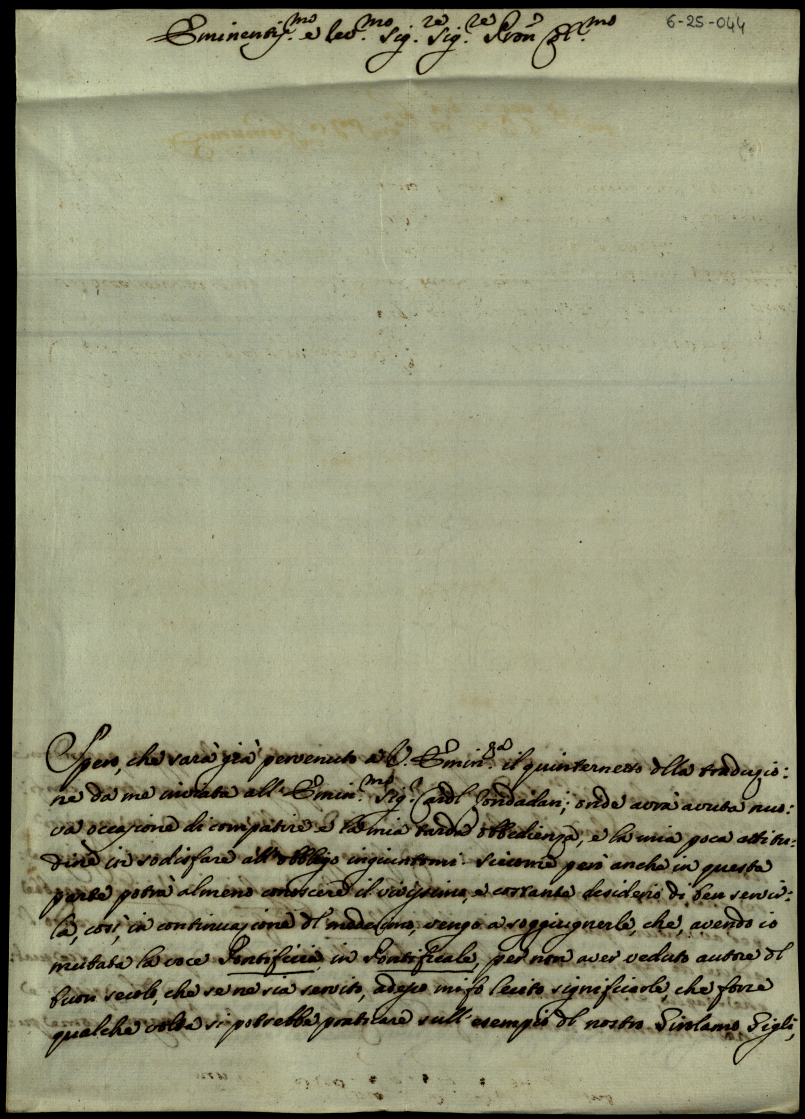 Eminentis.mo e Rev.mo Sig.re Sig.re Pron Col.mo
6-25-044
Spero, che sarà già pervenuto a V. Emin.za il quinternetto dlla traduzio:
ne da me inviata all' Emin.mo Sig.r Cardl Zondadari; onde avrà avuta nuo:
va occasione di compatire e la mia tarda obbedienza, e la mia poca attitu:
dine in sodisfare all' obbligo ingiuntomi. Siccome però anche in questa
parte potrà almeno conoscere il vivissimo, e costante desiderio di ben servir:
la, così, in continuazione dl medesimo, vengo a soggiugnerle, che, avendo io
mutata la voce Pontificia in Pontificale, per non aver veduto autore dl
buon secolo, che se ne sia servito, adesso mi fo lecito significarle, che forse
qualche volta si potrebbe praticare sull' esempio dl nostro Girolamo Gigli,